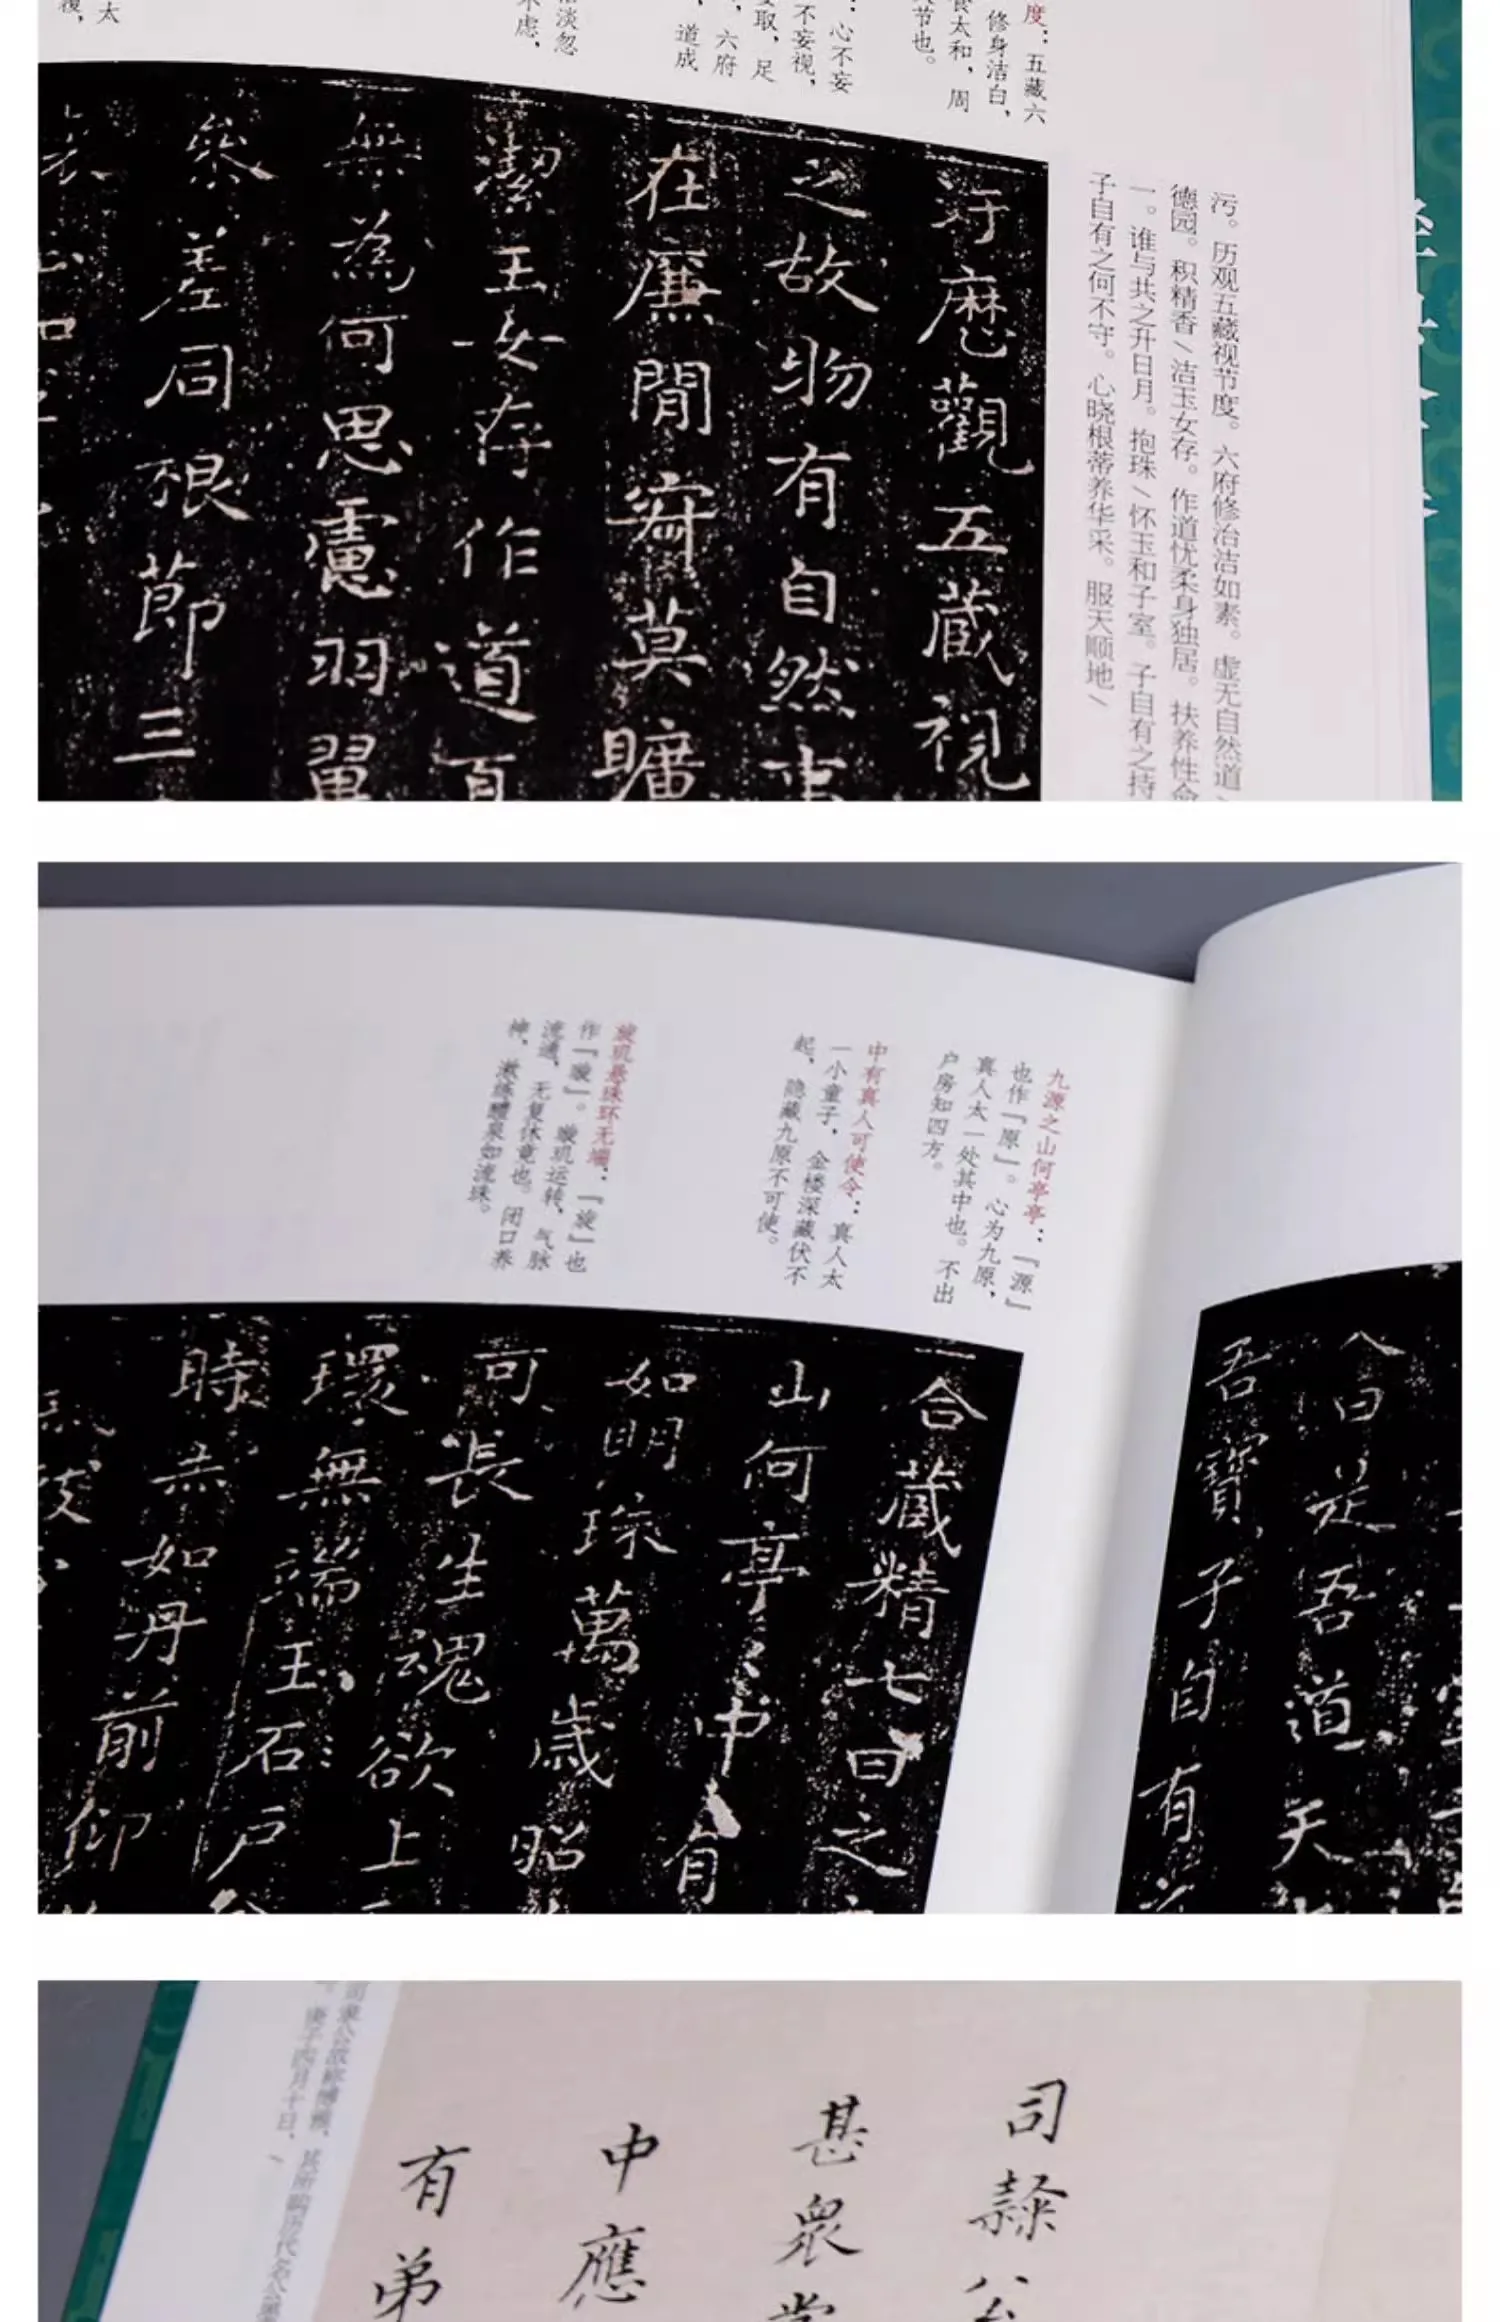 度：五藏六
修身洁白，
食太和，周
节也。
：心不妄
不妄视，
取，足
，六府
，道成
淡忽
不虑，
太
污。历观五藏视节度。六府修治洁如素。虚无自然道\
德园。积精香\洁玉女存。作道忧柔身独居。扶养性命
一。谁与共之升日月。抱珠\怀玉和子室。子自有之持
子自有之何不守。心晓根蒂养华采。服天顺地\
汙歷觀五藏視
之故物有自然事
在廉閒齋莫曠
潔玉女存作道
無為何思慮羽翼
參差同根節三
九源之山何亭亭：『源』
也作『原』。心为九原，
真人太一处其中也。不出
户房知四方。
中有真人可使令：真人太
一小童子，金楼深藏伏不
起，隐藏九原不可使。
旋玑悬珠环无端：『旋』也
作『璇』。璇玑运转，气脉
流通，无复休竟也。闭口养
神，漱练醴泉如流珠。
曰是吾道天
吾寶子自有
合藏精七日之
山何亭亭中有
如明珠萬歲昭
可長生魂欲上
環無端玉石戶
時赤如丹前仰
司隸公
甚衆當
中應
有弟
庚子四月十日，\其所购历代名公